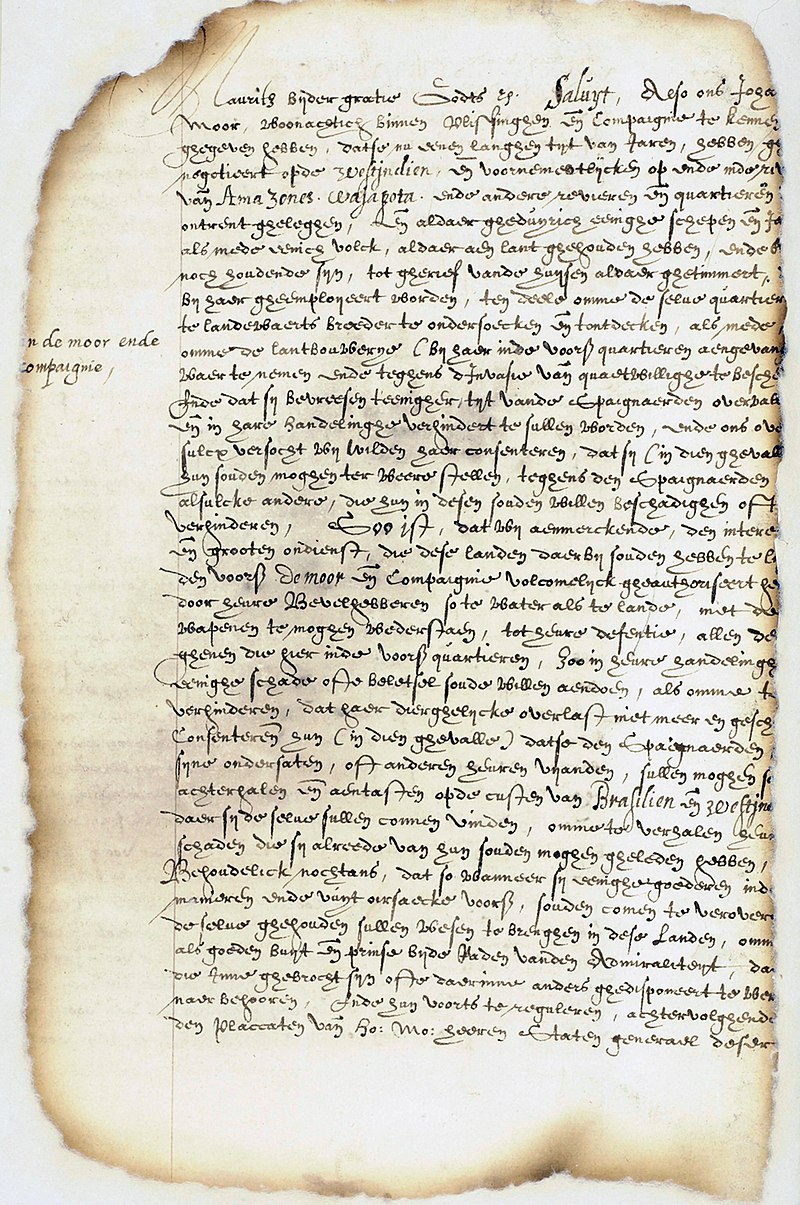 Maurith bijder gratie Godts etc. Saluijt, Also ons Joha
Moor, woonachtich binnen Vlissinghen en̄ Compaignie te kennen
ghegeven hebben, datse nu eenen langhen tijt van Jaren, hebben gh
negotieert opde Westjndien, en̄ voornementlijcken op ende inde rev
van Amazones. Wajapota. ende andere revieren en̄ quartieren
ontrent gheleghen, en̄ aldaer gheduijrich eenighe schepen en̄ Ja
als mede eenich volck, aldaer aen lant ghehouden hebben, ende
noch houdende sijn, tot gherief vande huijsen aldaer ghetimmert,
bij haer gheemploijeert worden, ten deele omme de selve quartier
te landewaerts breeder te ondersoecken en̄ tontdecken, als mede
omme de lantbouwerije (bij haer inde voors quartieren aengevan
waer te nemen ende teghens d'Invasie van quaetwillighe te besche
Ende dat sij bevreesen teenigher tijt vande Spaignaerden overval
en̄ in hare handelinghe verhindert te sullen worden, ende ons ove
sulcx versocht wij wilden haer consenteren, dat sij (in dien gheval
hun souden moghen ter weere stellen, teghens den Spaignaerden
alsulcke andere, die hun in desen souden willen beschadighen oft
verhinderen, Soo jst, dat wij aenmerckende, den intere
en̄ grooten ondienst, die dese landen daerbij souden hebben te l
den voors de moor en̄ Compaignie volcomelijck gheauthoriseert he
door heure Bevelhebberen so te water als te lande, met de
wapenen te moghen wederstaen, tot heure defentie, allen de
ghenen die hier inde voors quartieren, zoo in heure handelingh
eenighe schade ofte beletsel soude willen aendoen, als omme t
verhinderen, dat haer dierghelijcke overlast niet meer en gesch
Consenteren hun (in dien ghevalle) datse den Spaignaerden
sijne ondersaten, oft anderen heuren vijanden, sullen moghen
achterhalen en̄ aentasten opde custen van Brasilien en̄ Westjn
daer sij de selve sullen connen vinden, omme te verhalen heur
schaden die sij alreede van hun souden moghen gheleden hebben,
Behoudelick nochtans, dat so wanneer sij eenighe goederen ind
manieren ende uuijt oirsaecke voors, souden comen te verover
de selve ghehouden sullen wesen te brenghen in dese Landen, omm
als goeden buijt en̄ prinse bijde Raden vanden Admiraliteijt, da
die Inne ghebrocht sijn ofte daerinne anders ghedisponeert te wer
naer behooren, Ende hun voorts te reguleren, achtervolghende
den Placcaten van Ho: Mo: heeren Staten generael deser
n de moor ende
compaignie,